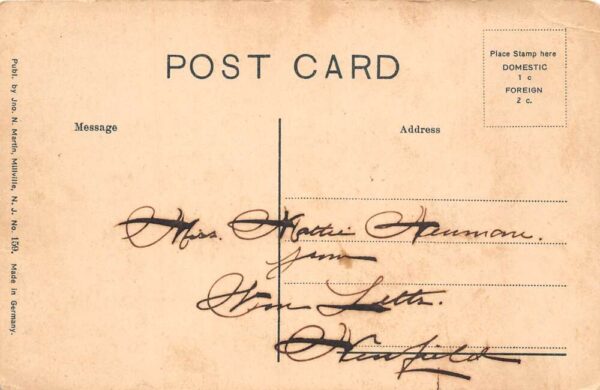 POST CARD
Place Stamp here
DOMESTIC
1 c
FOREIGN
2 c.
Message
Address
Publ. by Jno. N. Martin, Millville, N. J. No. 159. Made in Germany.
Miss. Mattie
from
Letts.
Newfield